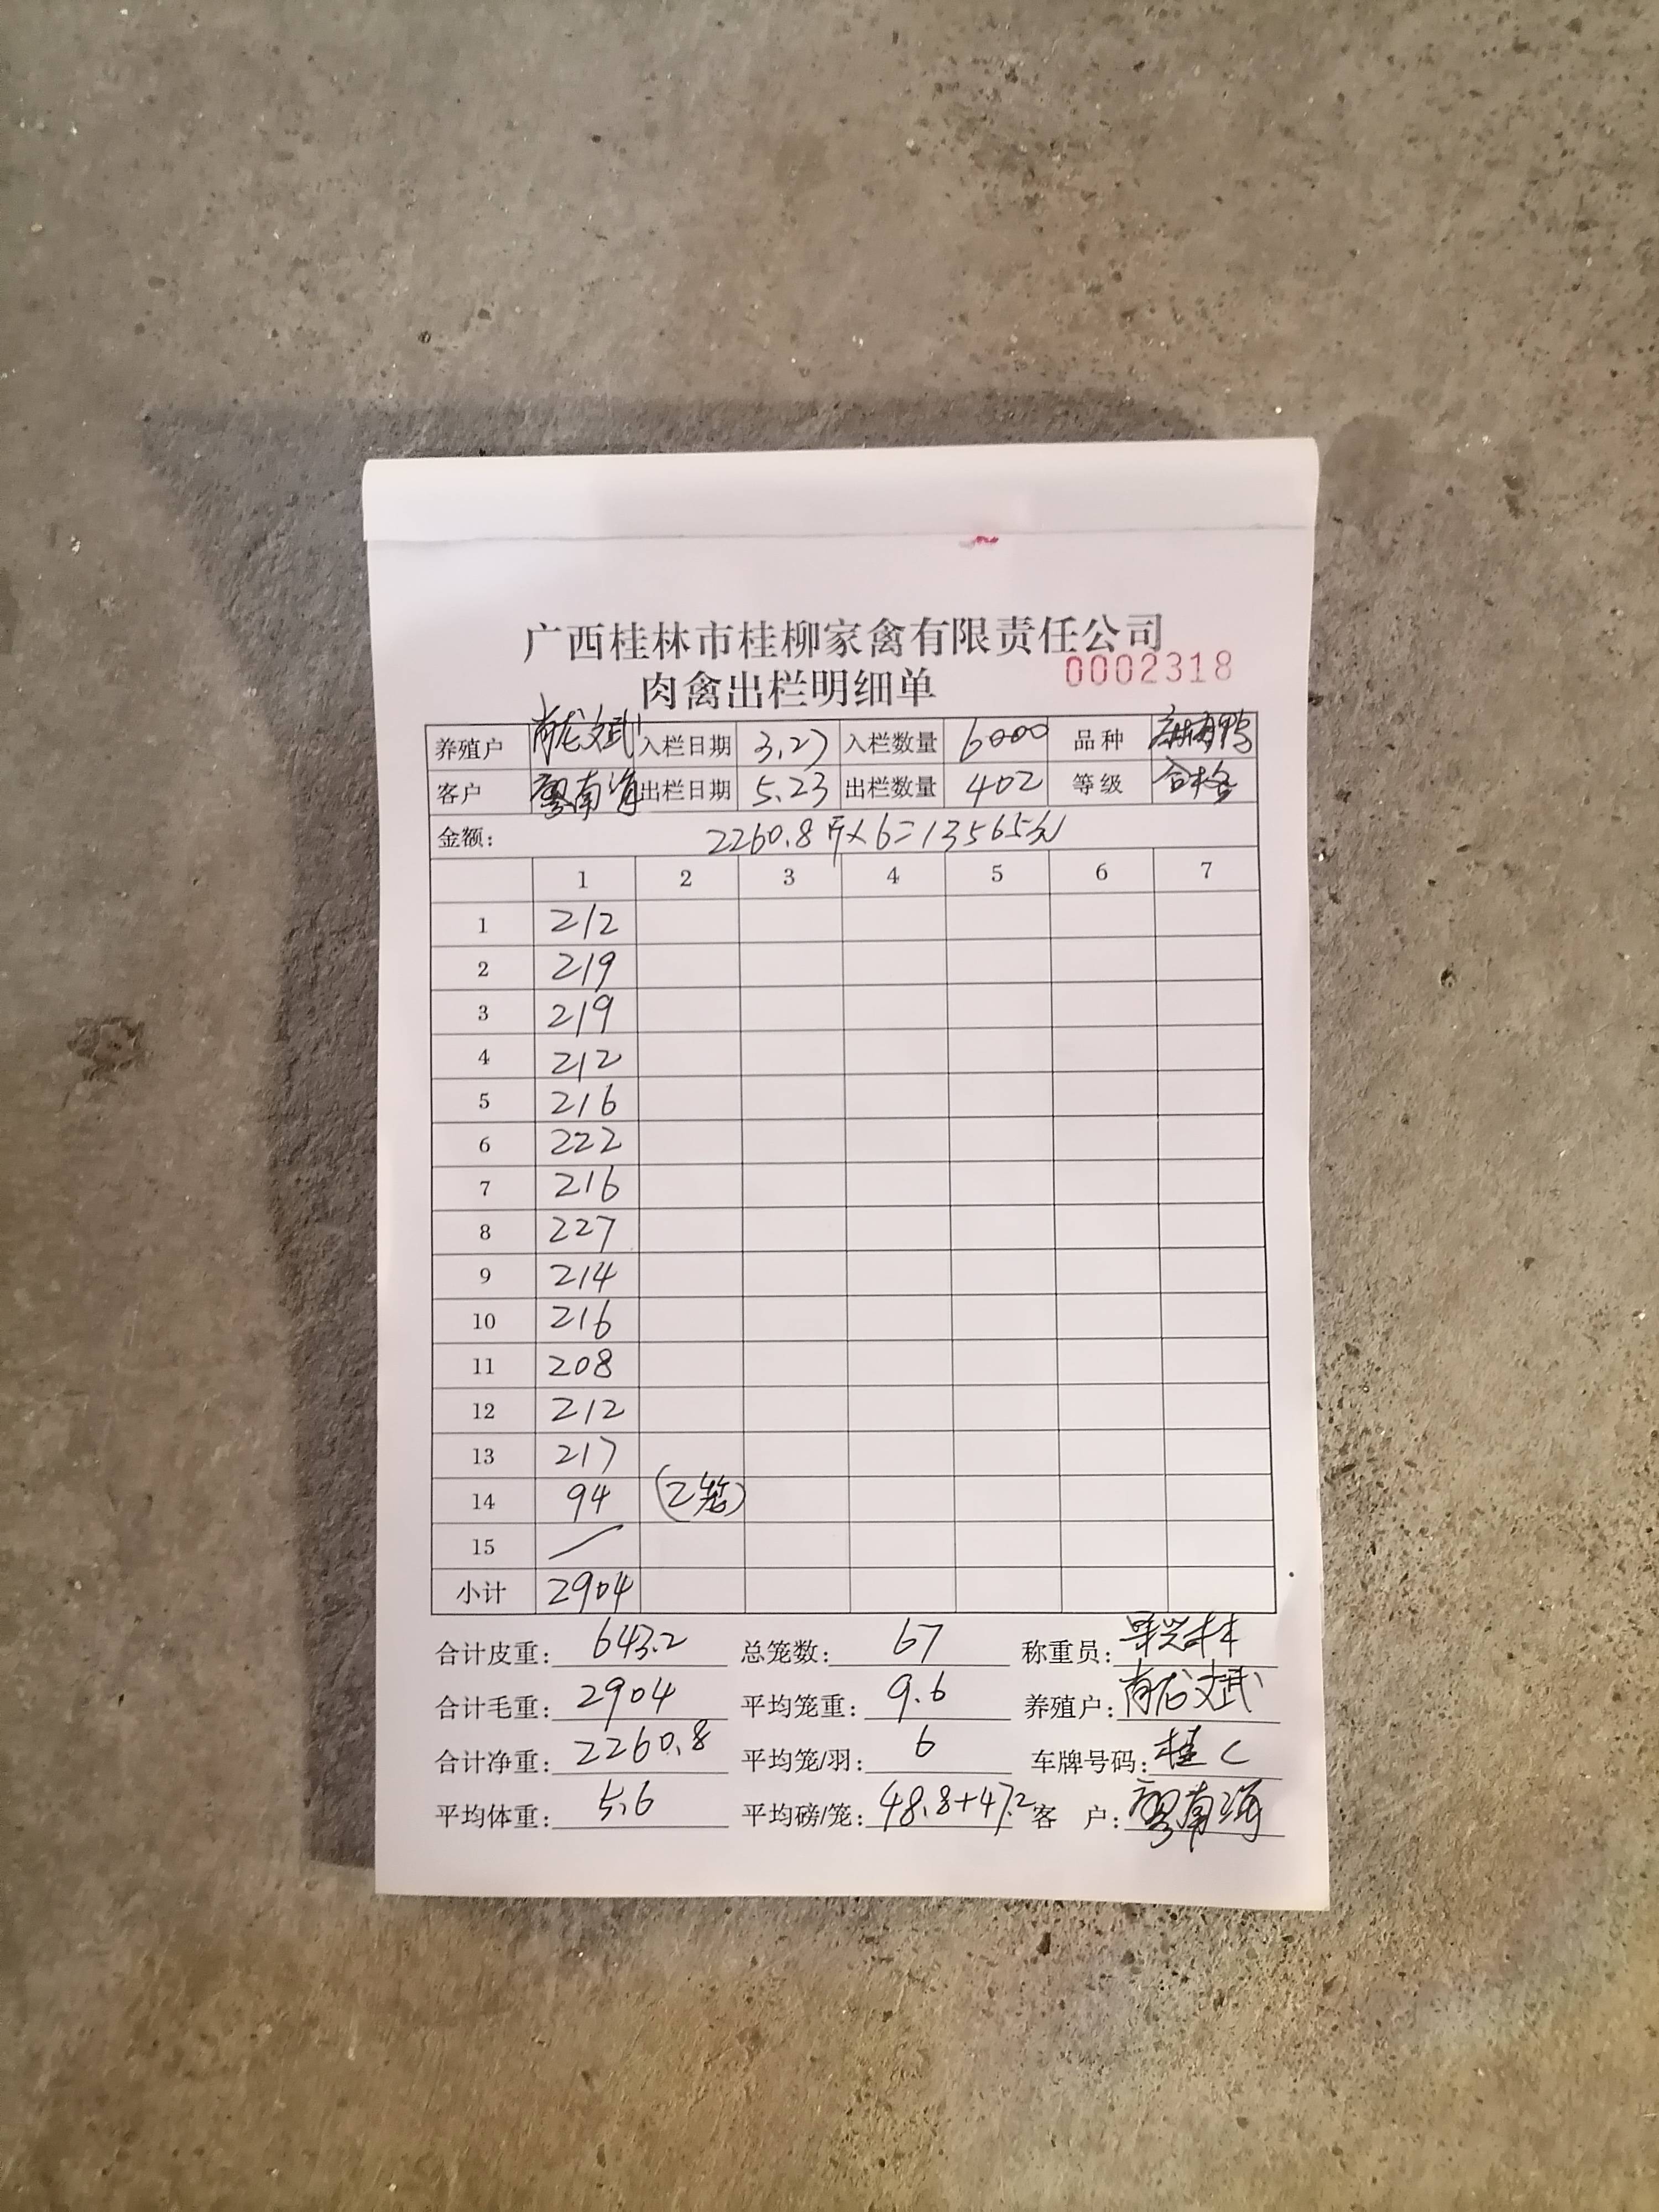 广西桂林市桂柳家禽有限责任公司
肉禽出栏明细单 0002318
养殖户 龙文武 入栏日期 3.27 入栏数量 6000 品种 麻鸭
客户 廖南海 出栏日期 5.23 出栏数量 402 等级 合格
金额: 2260.8斤×6=13565元
1 2 3 4 5 6 7
1 212
2 219
3 219
4 212
5 216
6 222
7 216
8 227
9 214
10 216
11 208
12 212
13 217
14 94 (2笼)
15 /
小计 2904
合计皮重: 643.2 总笼数: 67 称重员:
合计毛重: 2904 平均笼重: 9.6 养殖户: 龙文武
合计净重: 2260.8 平均笼/羽: 6 车牌号码: 桂C
平均体重: 5.6 平均磅/笼: 48.8+47.2 客 户: 廖南海